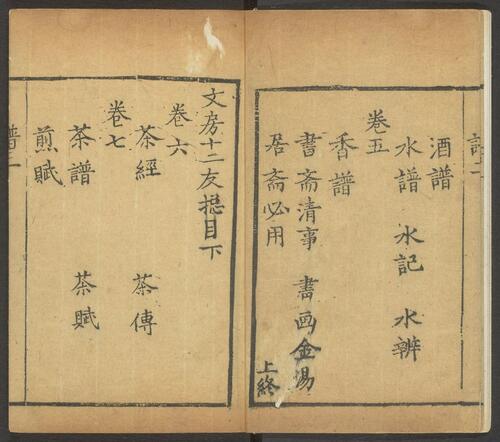 酒譜
水譜 水記 水辨
卷五
香譜
書斋清事 書画金湯
居斋必用
上終
文房十二友摠目下
卷六
茶經 茶傳
卷七
茶譜 茶賦
煎賦